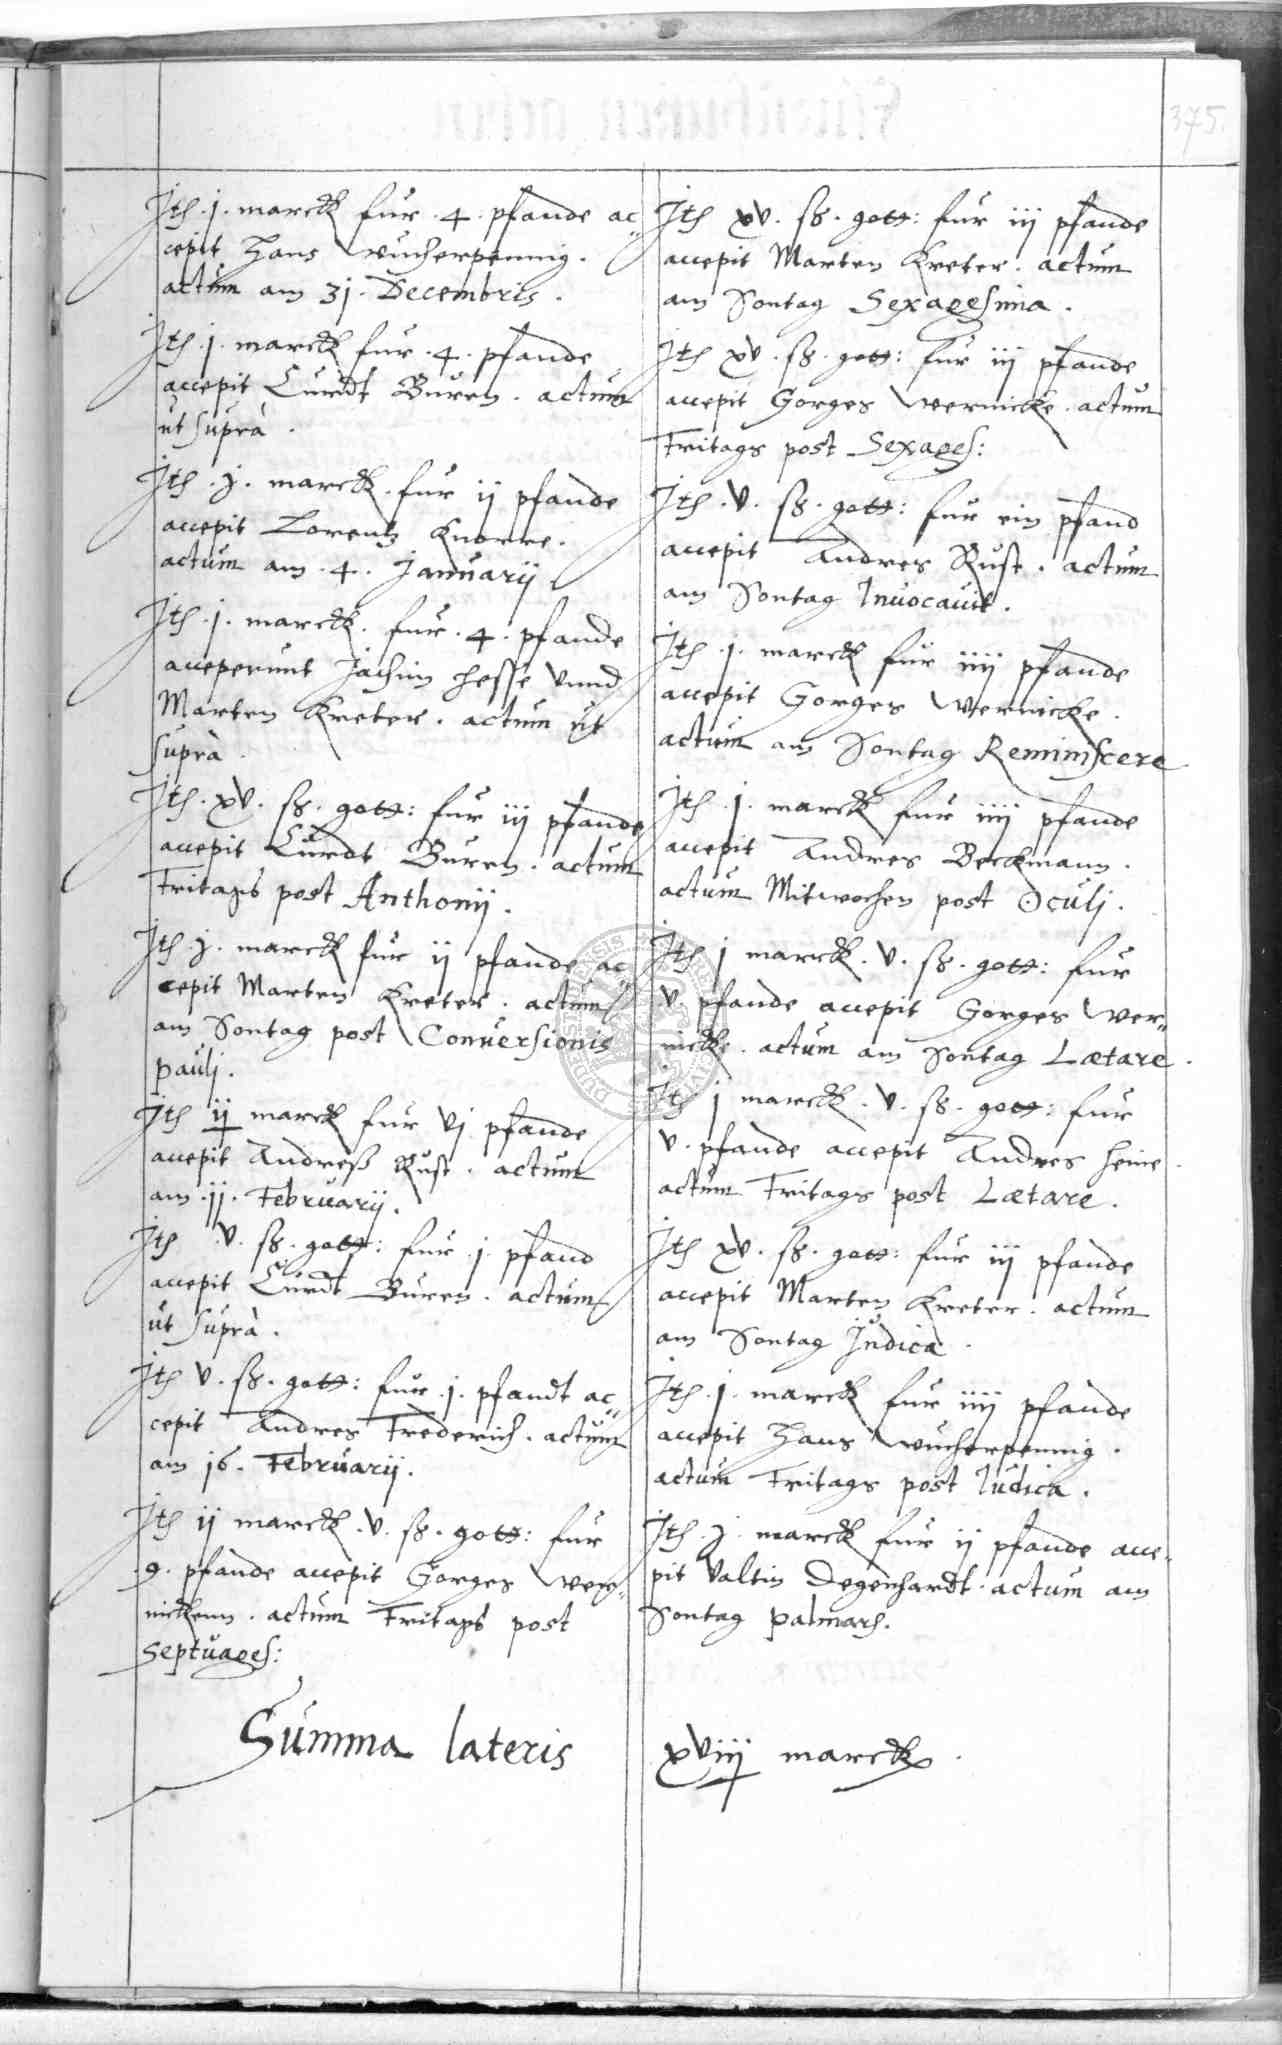 375.
Jth .j. marck fur .4. pfande ac„
cepit Hans Wucherpennig.
actum am 31. Decembris.
Jth .j. marck fur .4. pfande
accepit Curdt Buren. actum
ut suprà.
Jth .j. marck. fur ij pfande
accepit Lorentz Knorre.
actum am .4. Januarij
Jth .j. marck. fur .4. pfande
acceperunt Jachim Hesse vnnd
Marten Kreter. actum ut
suprà.
Jth. xv. ß. gott: fur iij pfande
accepit Curdt Buren. actum
Fritags post Anthonij.
Jth .j. marck fur ij pfande ac„
cepit Marten Kreter. actum
am Sontag post Conuersionis
pauli.
Jth ij marck fur vj pfande
accepit Andreß Rust. actum
am .ij. Februarij.
Jth v. ß. gott: fur .j. pfand
accepit Curdt Buren. actum
ut suprà.
Jth v. ß. gott: fur .j. pfandt ac„
cepit Andres Frederich. actum
am 16. Februarij.
Jth ij marck .v. ß. gott: fur
.9. pfande accepit Gorges Wer„
nickenn. actum Fritags post
Septuages:
Jth xv. ß. gott: fur iij pfande
accepit Marten Kreter. actum
am Sontag Sexagesima.
Jth xv. ß. gott: fur iij pfande
accepit Gorges Wernicke. actum
Fritags post Sexages:
Jth .v. ß. gott: fur ein pfand
accepit Andres Rust. actum
am Sontag Inuocauit.
Jth .j. marck fur iiij pfande
accepit Gorges Wernicke.
actum am Sontag Reminiscere
Jth .j. marck fur iiij pfande
accepit Andres Beckmann.
actum Mitwochen post Oculj.
Jth j marck. v. ß. gott: fur
v. pfande accepit Gorges Wer„
nicke. actum am Sontag Lætare.
Jth j marck. v. ß. gott: fur
v. pfande accepit Andres Heine.
actum Fritags post Lætare.
Jth xv. ß. gott: fur iij pfande
accepit Marten Kreter. actum
am Sontag Judica.
Jth .j. marck fur iiij pfande
accepit Hans Wucherpennig.
actum Fritags post Iudica.
Jth .j. marck fur ij pfande acce„
pit Valtin Degenhardt. actum am
Sontag palmarum.
Summa lateris xviij marck.